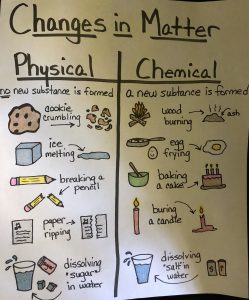 Changes in Matter
Physical
no new substance is formed
cookie crumbling
ice melting
breaking a pencil
paper ripping
dissolving "sugar" in water
Chemical
a new subtance is formed
wood burning
ash
egg frying
baking a cake
buring a candle
dissolving "salt" in water